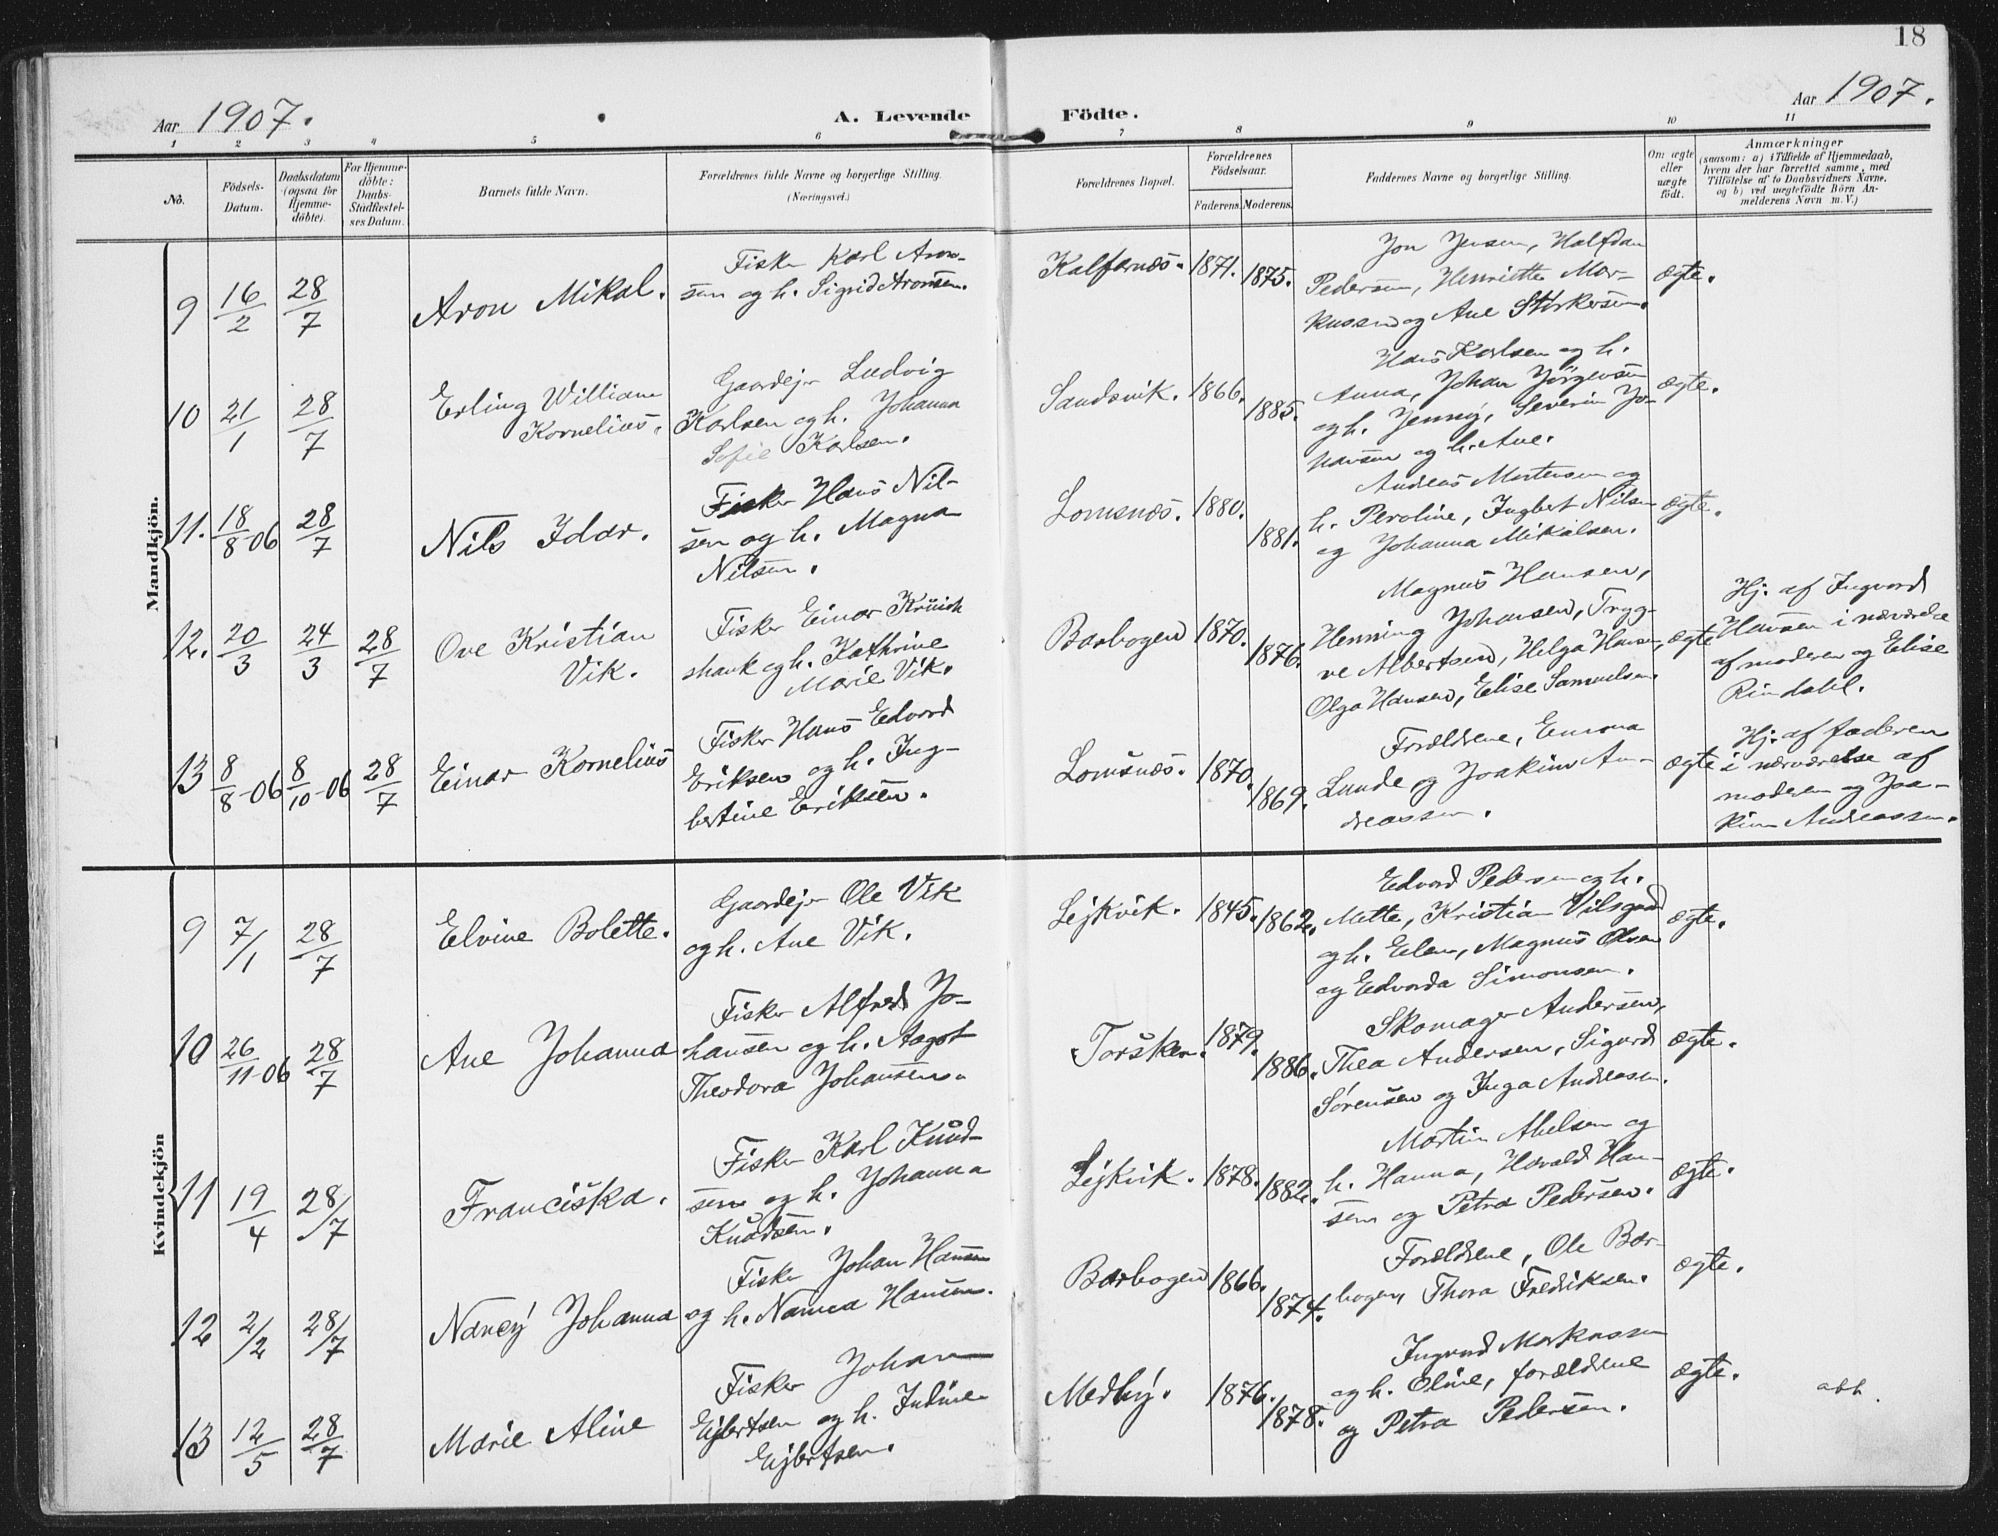 18
Aar 1907.
A. Levende Födte.
Aar 1907.
1 2 3 4 5 6 7 8 9 10 11
No.
Födsels-
Datum.
Daabsdatum
(ogsaa for
Hjemme-
döbte).
For Hjemme-
döbte:
Daabs-
Stadfæstel-
ses Datum.
Barnets fulde Navn.
Forældrenes fulde Navne og borgerlige Stilling.
(Næringsvei.)
Forældrenes Bopæl.
Forældrenes
Födselsaar.
Faderens. Moderens.
Faddernes Navne og borgerlige Stilling.
Om ægte
eller
uægte
födt.
Anmærkninger
(saasom: a) i Tilfælde af Hjemmedaab,
hvem der har forrettet samme, med
Tilföielse af to Daabsvidners Navne,
og b) ved uægtefödte Börn An-
melderens Navn m. V.)
Mandkjön.
9 16/2 28/7
Aron Mikal.
Fisker Karl Aron-
sen og h. Sigrid Aronsen.
Kalfarnæs. 1871. 1875.
Jon Jensen, Halfdan
Pedersen, Henriette Mar-
kussen og Ane Stirkersen.
ægte.
10 21/1 28/7
Erling William
Kornelius.
Gaardejer Ludvig
Karlsen og h. Johanna
Sofie Karlsen.
Sandsvik. 1866. 1885.
Hans Karlsen og h.
Anna, Johan Jörgensen
og h. Jenny, Severin Jo-
hansen og h. Ane.
ægte.
11. 18/8-06 28/7
Nils Idar.
Fisker Hans Nil-
sen og h. Magna
Nilsen.
Lomsnæs. 1880. 1881.
Andreas Mortensen og
h. Peroline, Ingbert Nilsen
og Johanna Mikalsen.
ægte.
12. 20/3 24/3 28/7
Ove Kristian
Vik.
Fisker Einar Krüick
shank og h. Kathrine
Marie Vik.
Barbogen 1870. 1876.
Magnus Hansen,
Henning Johansen, Tryg-
ve Albertsen, Helga Hansen,
Olga Hansen, Elise Samuelsen.
ægte
Hj. af Ingvard
Hansen i nærværelse
af moderen og Elise
Rindahl.
13 8/8-06 8/10-06 28/7
Einar Kornelius
Fisker Hans Edvard
Eriksen og h. Ing-
bertine Eriksen.
Lomsnæs. 1870. 1869.
Forældrene, Emma
Lunde og Joakim An-
dreassen.
ægte
Hj. af faderen
i nærværelse af
moderen og Joa-
kim Andreassen.
Kvindekjön
9 7/1 28/7
Elvine Bolette.
Gaardejer Ole Vik
og h. Ane Vik.
Lejkvik. 1845. 1862.
Edvard Pedersen og h.
Mette, Kristian Vilsgaard
og h. Elen, Magnus Olsen
og Edvarda Simonsen.
ægte.
10 26/11-06 28/7
Ane Johanna
Fisker Alfred Jo-
hansen og h. Aagot
Theodora Johansen.
Torsken. 1879. 1886.
Skomager Andersen,
Thea Andersen, Sigurd
Sörensen og Inga Andreasen.
ægte.
11 19/4 28/7
Franciska.
Fisker Karl Knud-
sen og h. Johanna
Knudsen.
Lejkvik. 1878. 1882.
Martin Abelsen og
h. Hanna, Harald Han-
sen og Petra Pedersen.
ægte.
12 2/2 28/7
Nancy Johanna
Fisker Johan Hansen
og h. Nanna Hansen.
Barbogen 1866. 1874.
Forældrene, Ole Bar-
bogen, Thora Fredriksen.
ægte.
13 12/5 28/7
Marie Aline
Fisker Johan
Ejbertsen og h. Indine
Ejbertsen.
Medby. 1876. 1878.
Ingvard Markussen
og h. Oline, forældrene
og Petra Pedersen.
ægte.